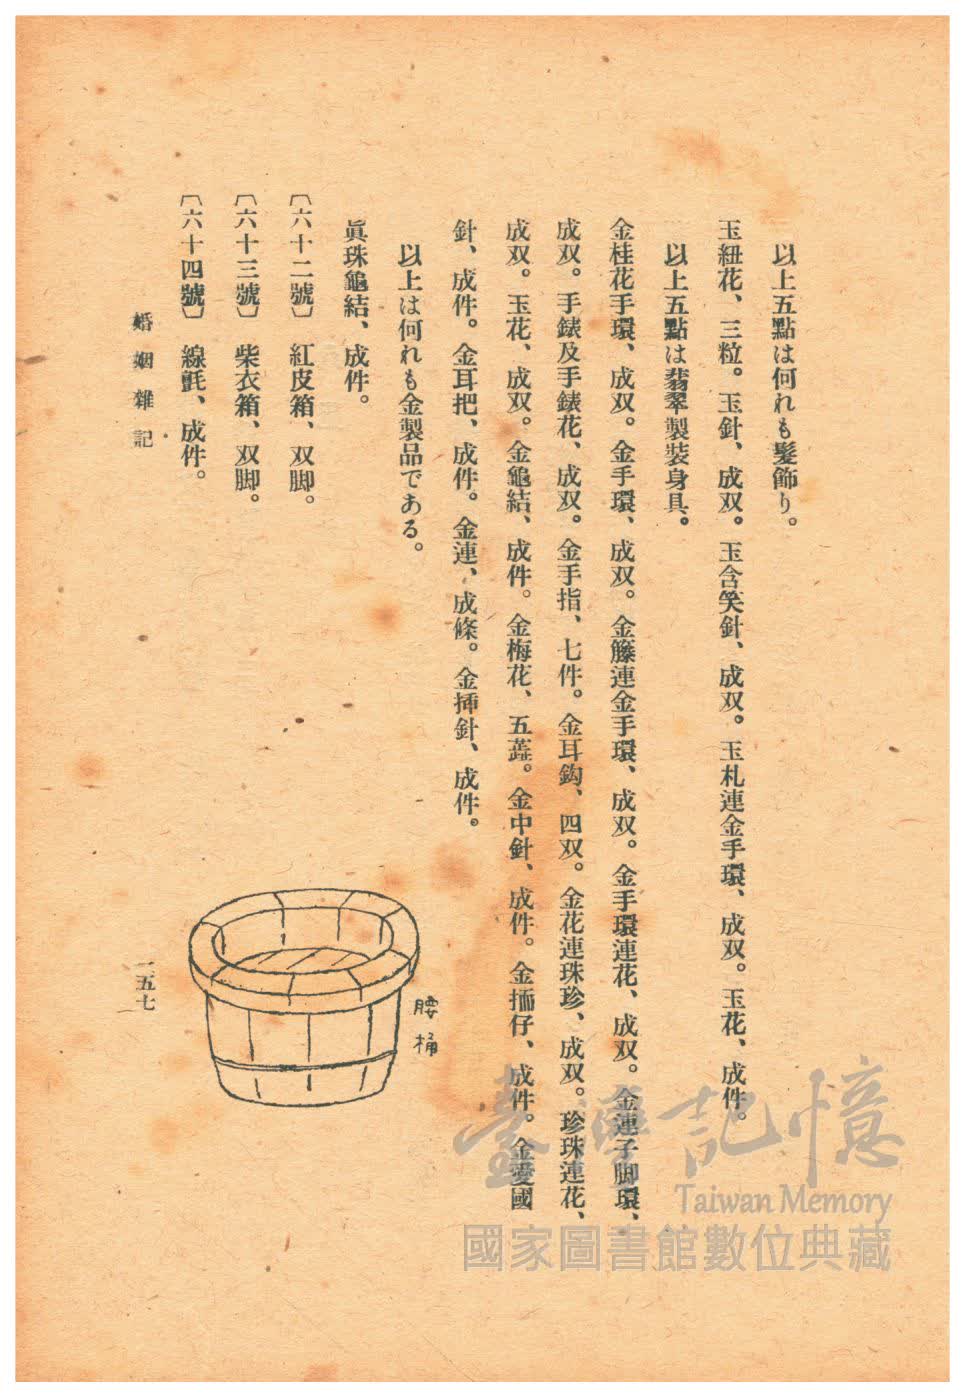 以上五點は何れも髮飾り。
玉紐花、三粒。玉針、成双。玉含笑針、成双。玉札連金手環、成双。玉花、成件。
以上五點は翡翠製裝身具。
金桂花手環、成双。金手環、成双。金籐連金手環、成双。金手環連花、成双。金連子脚環、
成双。手錶及手錶花、成双。金手指、七件。金耳鈎、四双。金花連珠珍、成双。珍珠連花、
成双。玉花、成双。金龜結、成件。金梅花、五蕋。金中針、成件。金插仔、成件。金愛國
針、成件。金耳把、成件。金連、成條。金挿針、成件。
以上は何れも金製品である。
眞珠龜結、成件。
〔六十二號〕 紅皮箱、双脚。
〔六十三號〕 柴衣箱、双脚。
〔六十四號〕 線氈、成件。
婚姻雜記
一五七
腰桶
臺灣記憶
Taiwan Memory
國家圖書館數位典藏